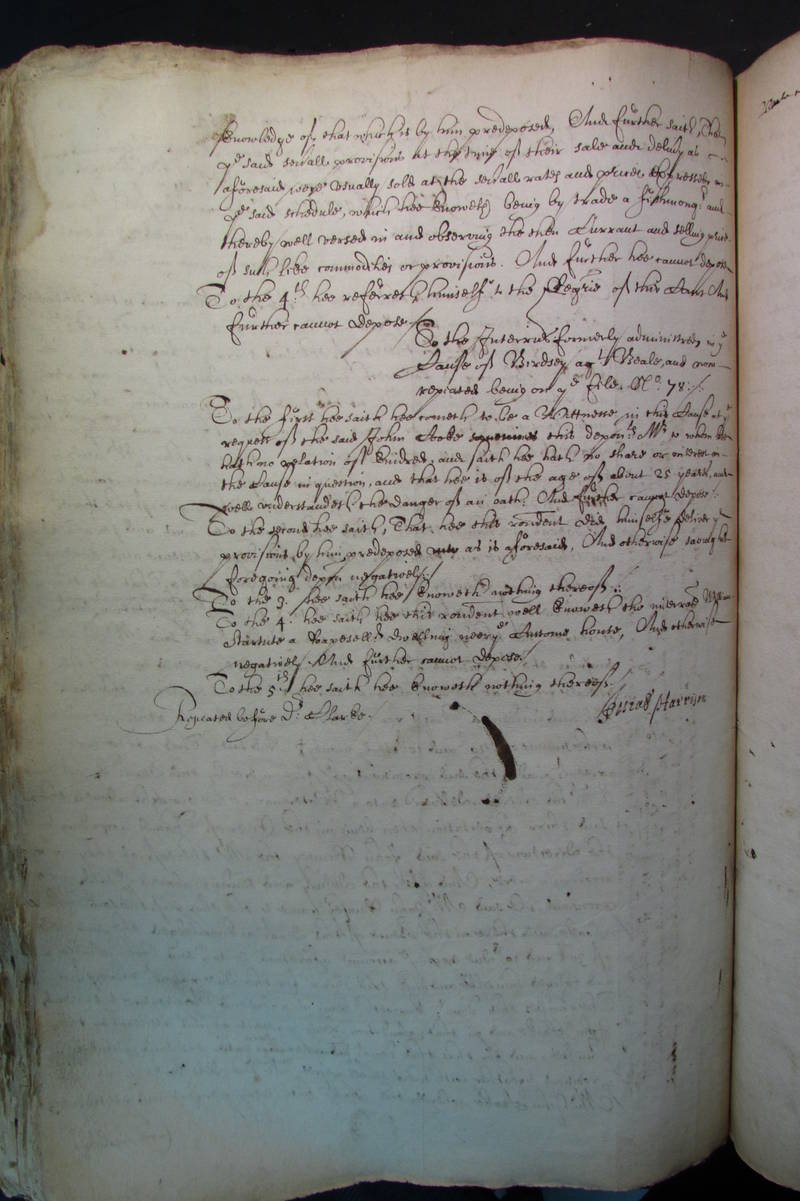 knowledge of that which is by him predeposed, And further saith, That
ye said severall provisions at the tyme of their sale and delivery as
aforesaid, were usually sold at the severall rates and prices expressed in
ye said schedule, which hee knoweth being by trade a fishmongr and
thereby well versed in and observing the then Currant and selling price
of such like commodities or provisions. And further hee cannot depose
To the 4th hee referreth himselfe to the Regrie of this Court And
further cannot depose
To the Interries formerly administred in ye
Cause of Birdsey agt Beale, and now
repeated being on ye file. No. 78:/.
To the first hee saith hee cometh to be a Wittnesse in this Cause at ye
request of the said John this deponts Mr to whom hee
hath no relation of kindred, and saith hee hath no share or interest in
the Cause in question, and that hee is of the age of about 25 yeares, and
well understandeth the danger of an oath. And further cannot depose.
To the second hee saith, That hee this rondent did himselfe deliver ye
provisions by him predeposed as is aforesaid, And otherwise saving his
foregoing depon negatively
To the 3. hee saith hee knoweth nothing thereof:
To the 4. hee saith hee this rondent well knoweth the interrate
a dwelling neere house, And otherwise
negatively And further cannot depose.
To the 5th hee saith hee knoweth nothing thereof
Repeated before Dr. Clarke.
Josias Harrison